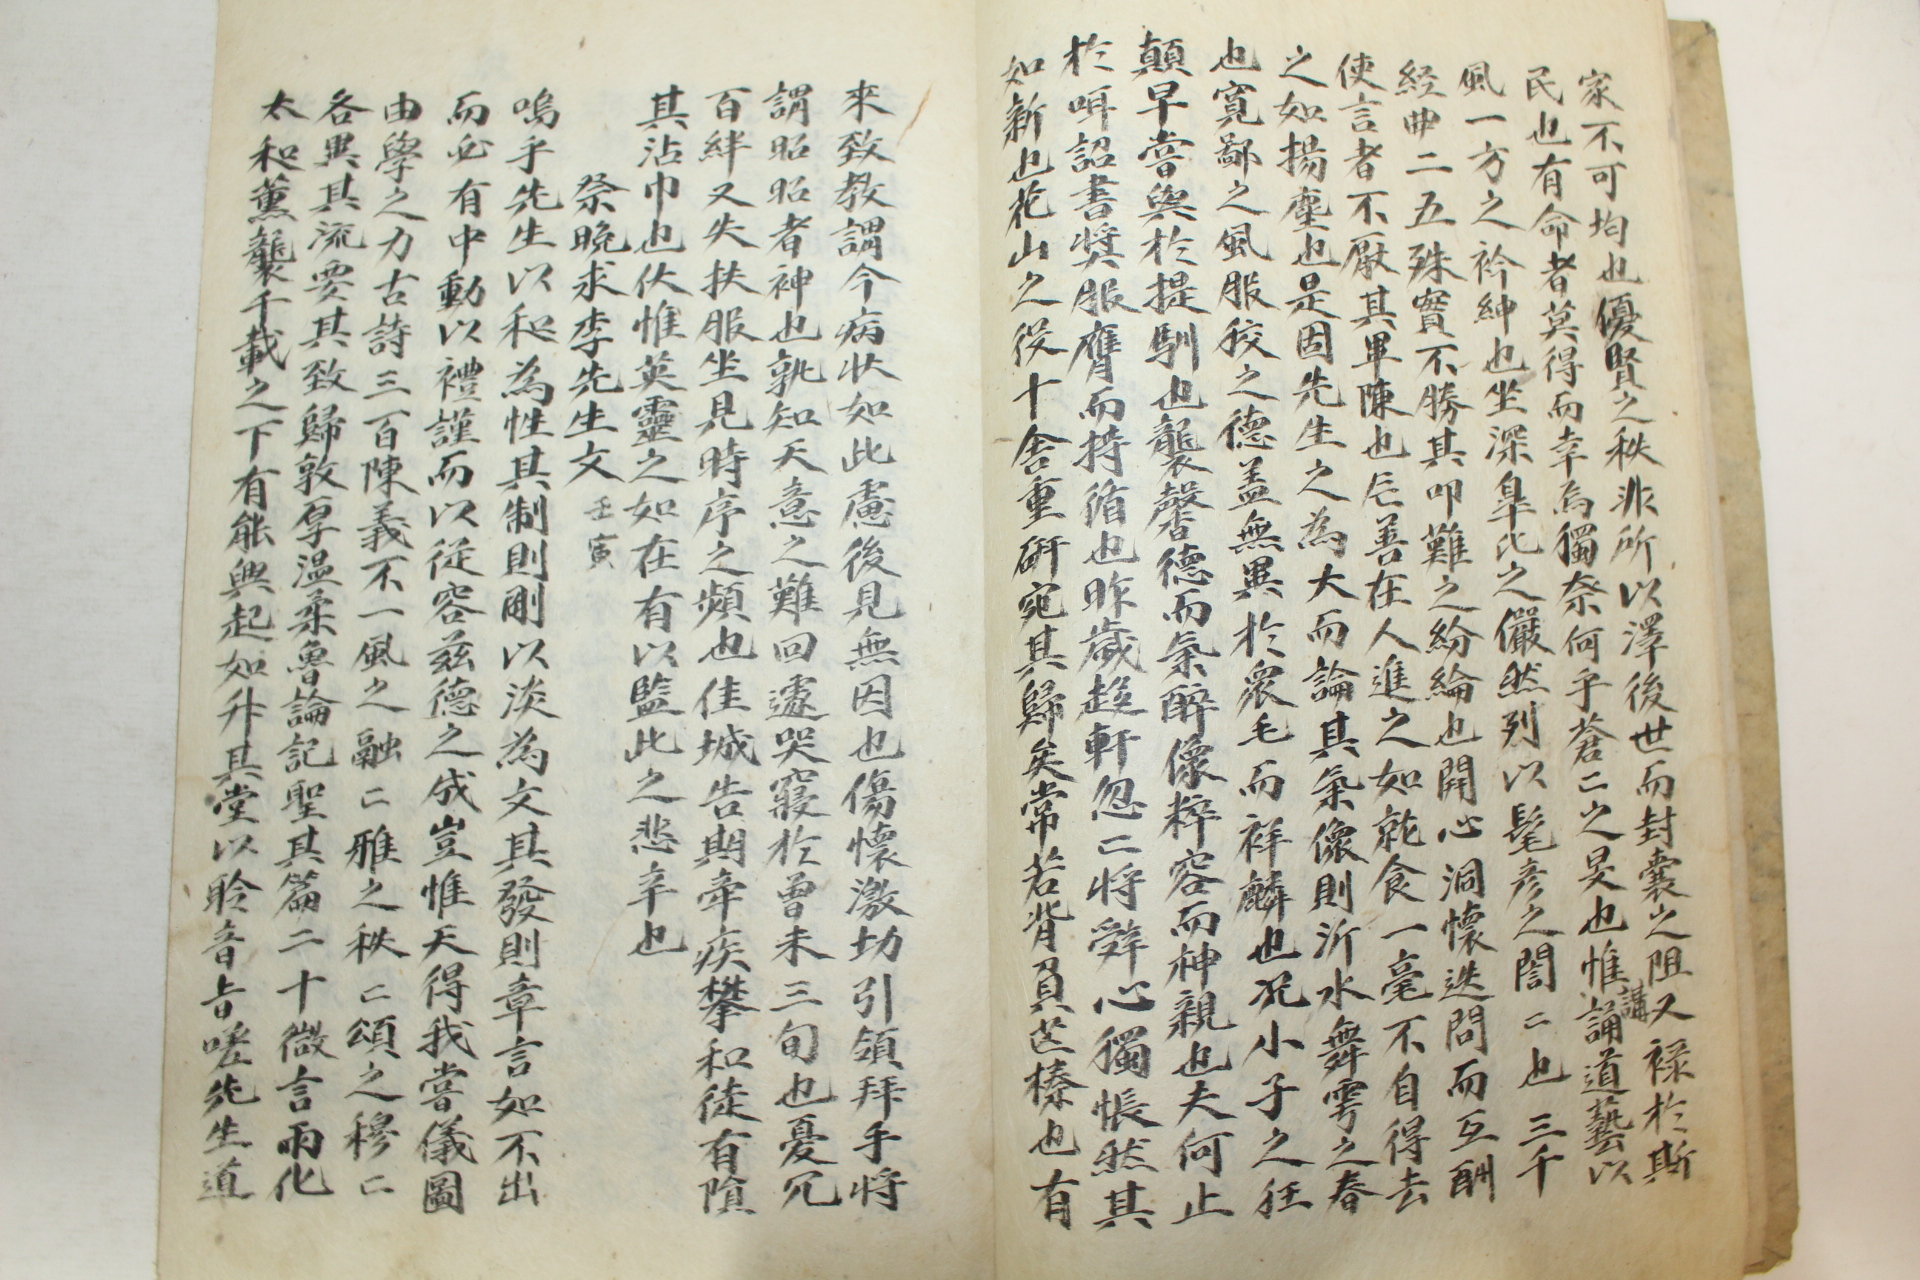 家不可均也優賢之秩非所以澤後世而封囊之阻又祿於斯
民也有命者莫得而幸為獨奈何乎蒼〻之旻也惟誦講道藝以
風一方之衿紳也坐深皐比之儼然列以髦彦之誾〻也三千
經曲二五殊實不勝其叩難之紛綸也開心洞懷迭問而互酬
使言者不厭其畢陳也巵善在人進之如就食一毫不自得去
之如揚塵也是因先生之為大而論其氣像則沂水舞雩之春
也寬鄙之風服狡之德盖無異於衆毛而祥麟也况小子之狂
顛早嘗與於提馴也襲馨德而氣醉像粹容而神親也夫何止
於咡詔書奬服膺而持循也昨歲趍軒忽〻將辭心獨悵然其
如新也花山之役十舍重硏宛其歸矣常若背負芒榛也有
來致教謂今病状如此慮後見無因也傷懷激切引領拜手將
謂昭昭者神也孰知天意之難回遽哭寢於曾未三旬也憂冗
百絆又失扶服坐見時序之頻也佳城告期牽疾攀和徒有隕
其沾巾也伏惟英靈之如在有以監此之悲辛也
祭晩求李先生文 壬寅
嗚乎先生以和為性其制則剛以淡為文其發則章言如不出
而必有中動以禮謹而以從容兹德之成豈惟天得我嘗儀圖
由學之力古詩三百陳義不一風之融〻雅之秩〻頌之穆〻
各異其流要其致歸敦厚温柔魯論記聖其篇二十微言雨化
太和薰襲千載之下有能興起如升其堂以聆音旨嗟先生道